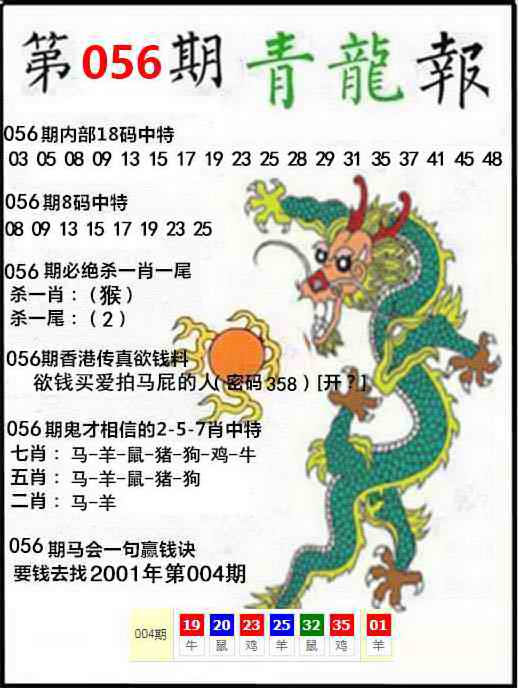 第056期青龍報
056期内部18码中特
03 05 08 09 13 15 17 19 23 25 28 29 31 35 37 41 45 48
056期8码中特
08 09 13 15 17 19 23 25
056期必绝杀一肖一尾
杀一肖：（猴）
杀一尾：（2）
056期香港传真欲钱料
欲钱买爱拍马屁的人(密码358)[开？]
056期鬼才相信的2-5-7肖中特
七肖：马-羊-鼠-猪-狗-鸡-牛
五肖：马-羊-鼠-猪-狗
二肖：马-羊
056期马会一句赢钱诀
要钱去找2001年第004期
004期 19 20 23 25 32 35 01
牛 鼠 鸡 羊 鼠 鸡 羊